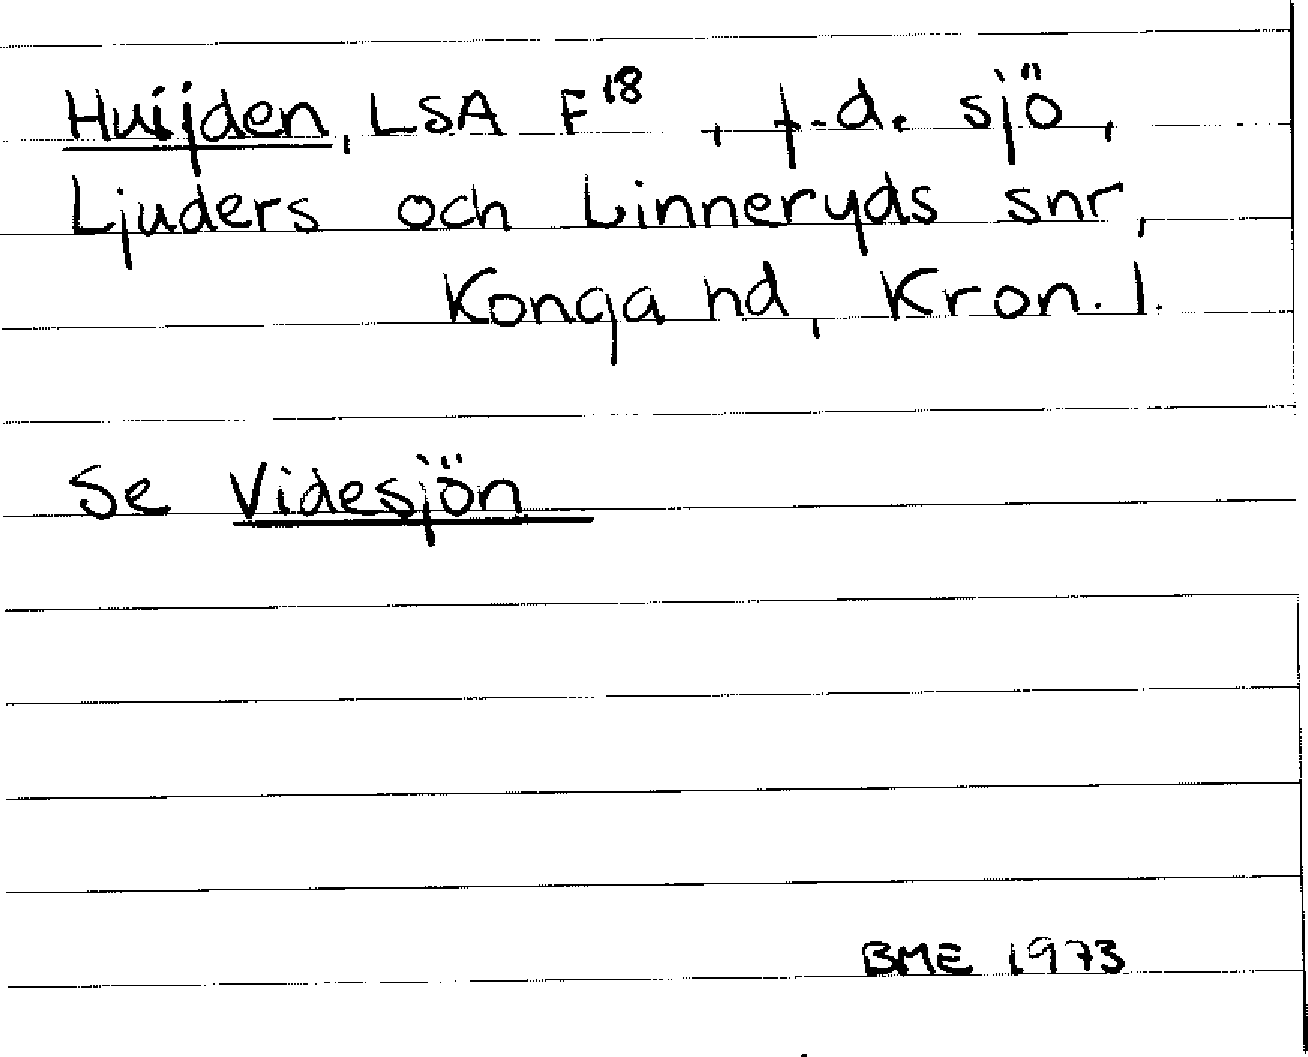 Huijden, LSA F18 , f.d. sjö,
Ljuders och Linneryds snr,
Konga hd, Kron. l.
Se Videsjön
BME 1973